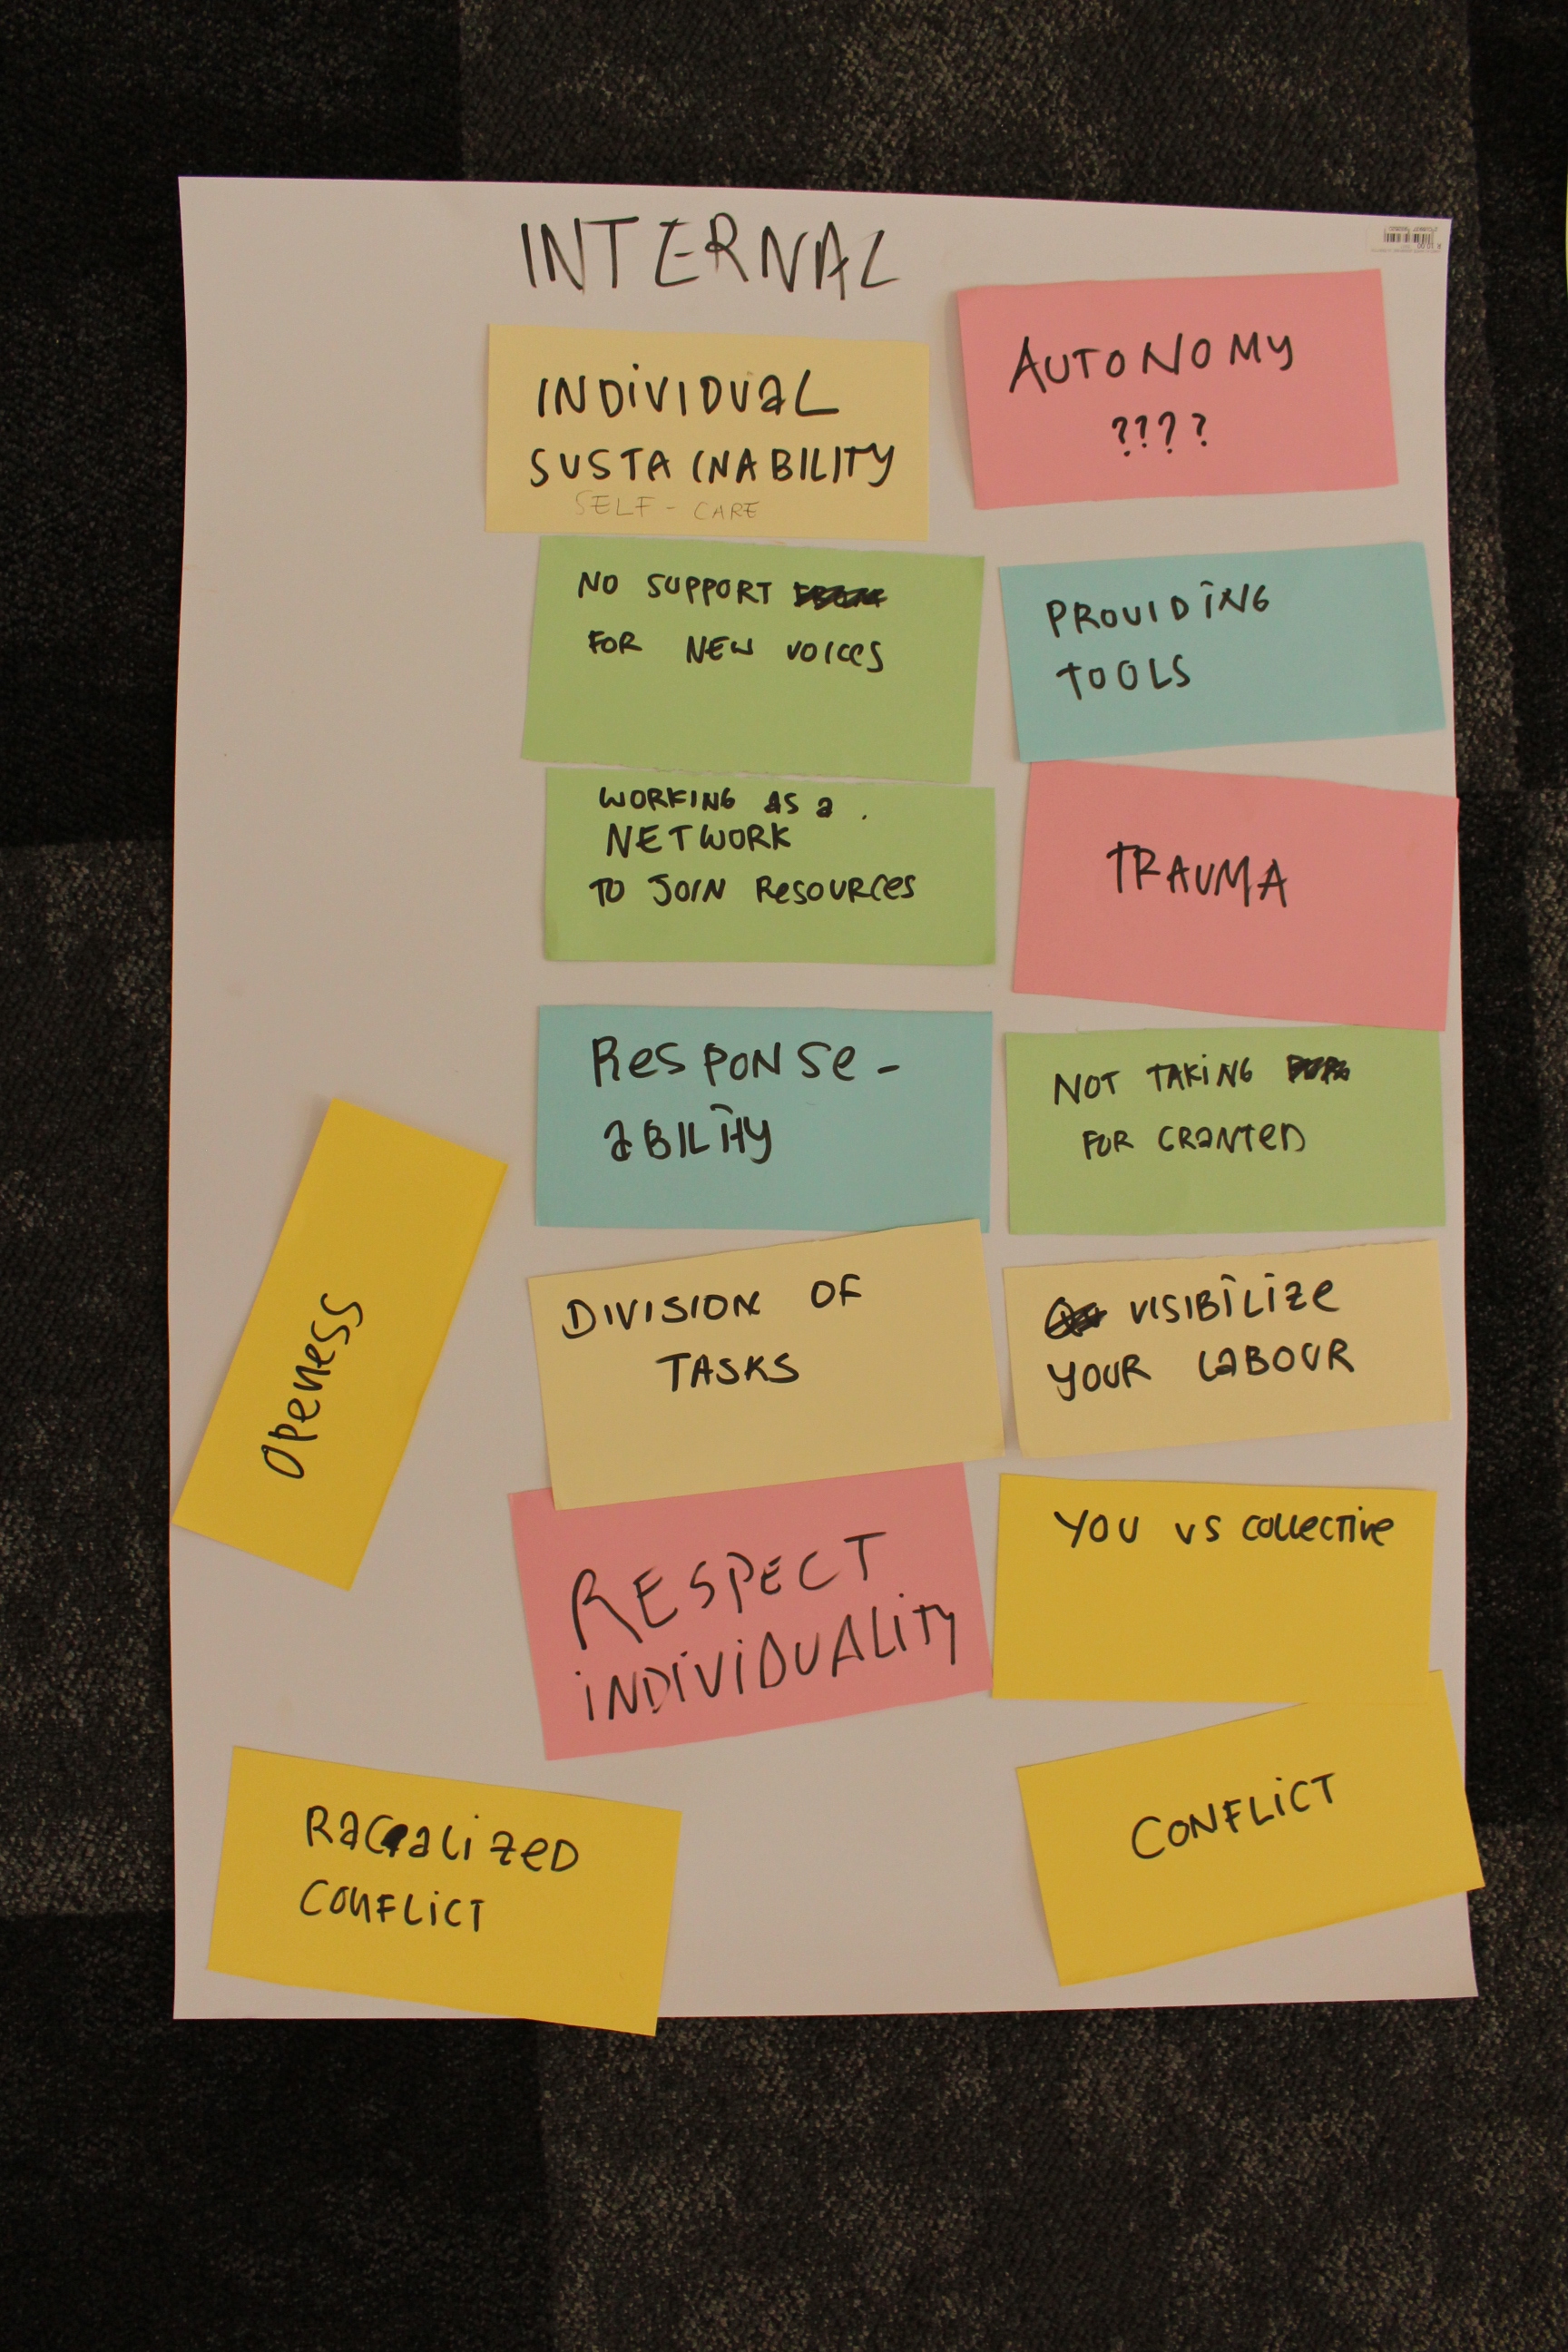 INTERNAL
INDIVIDUAL
SUSTAINABILITY
SELF - CARE
AUTONOMY
????
NO SUPPORT
FOR NEW VOICES
PROVIDING
TOOLS
WORKING AS a
NETWORK
TO JOIN ResOURCes
TRAUMA
Response -
aBILITY
NOT TAKING
FOR GRaNTeD
Openess
DIVISION OF
TASKS
VISIBILIZe
YOUR LaBOUR
RESPECT
INDIVIDUALITY
YOU vs collective
Racialized
CONFLICT
CONFLICT